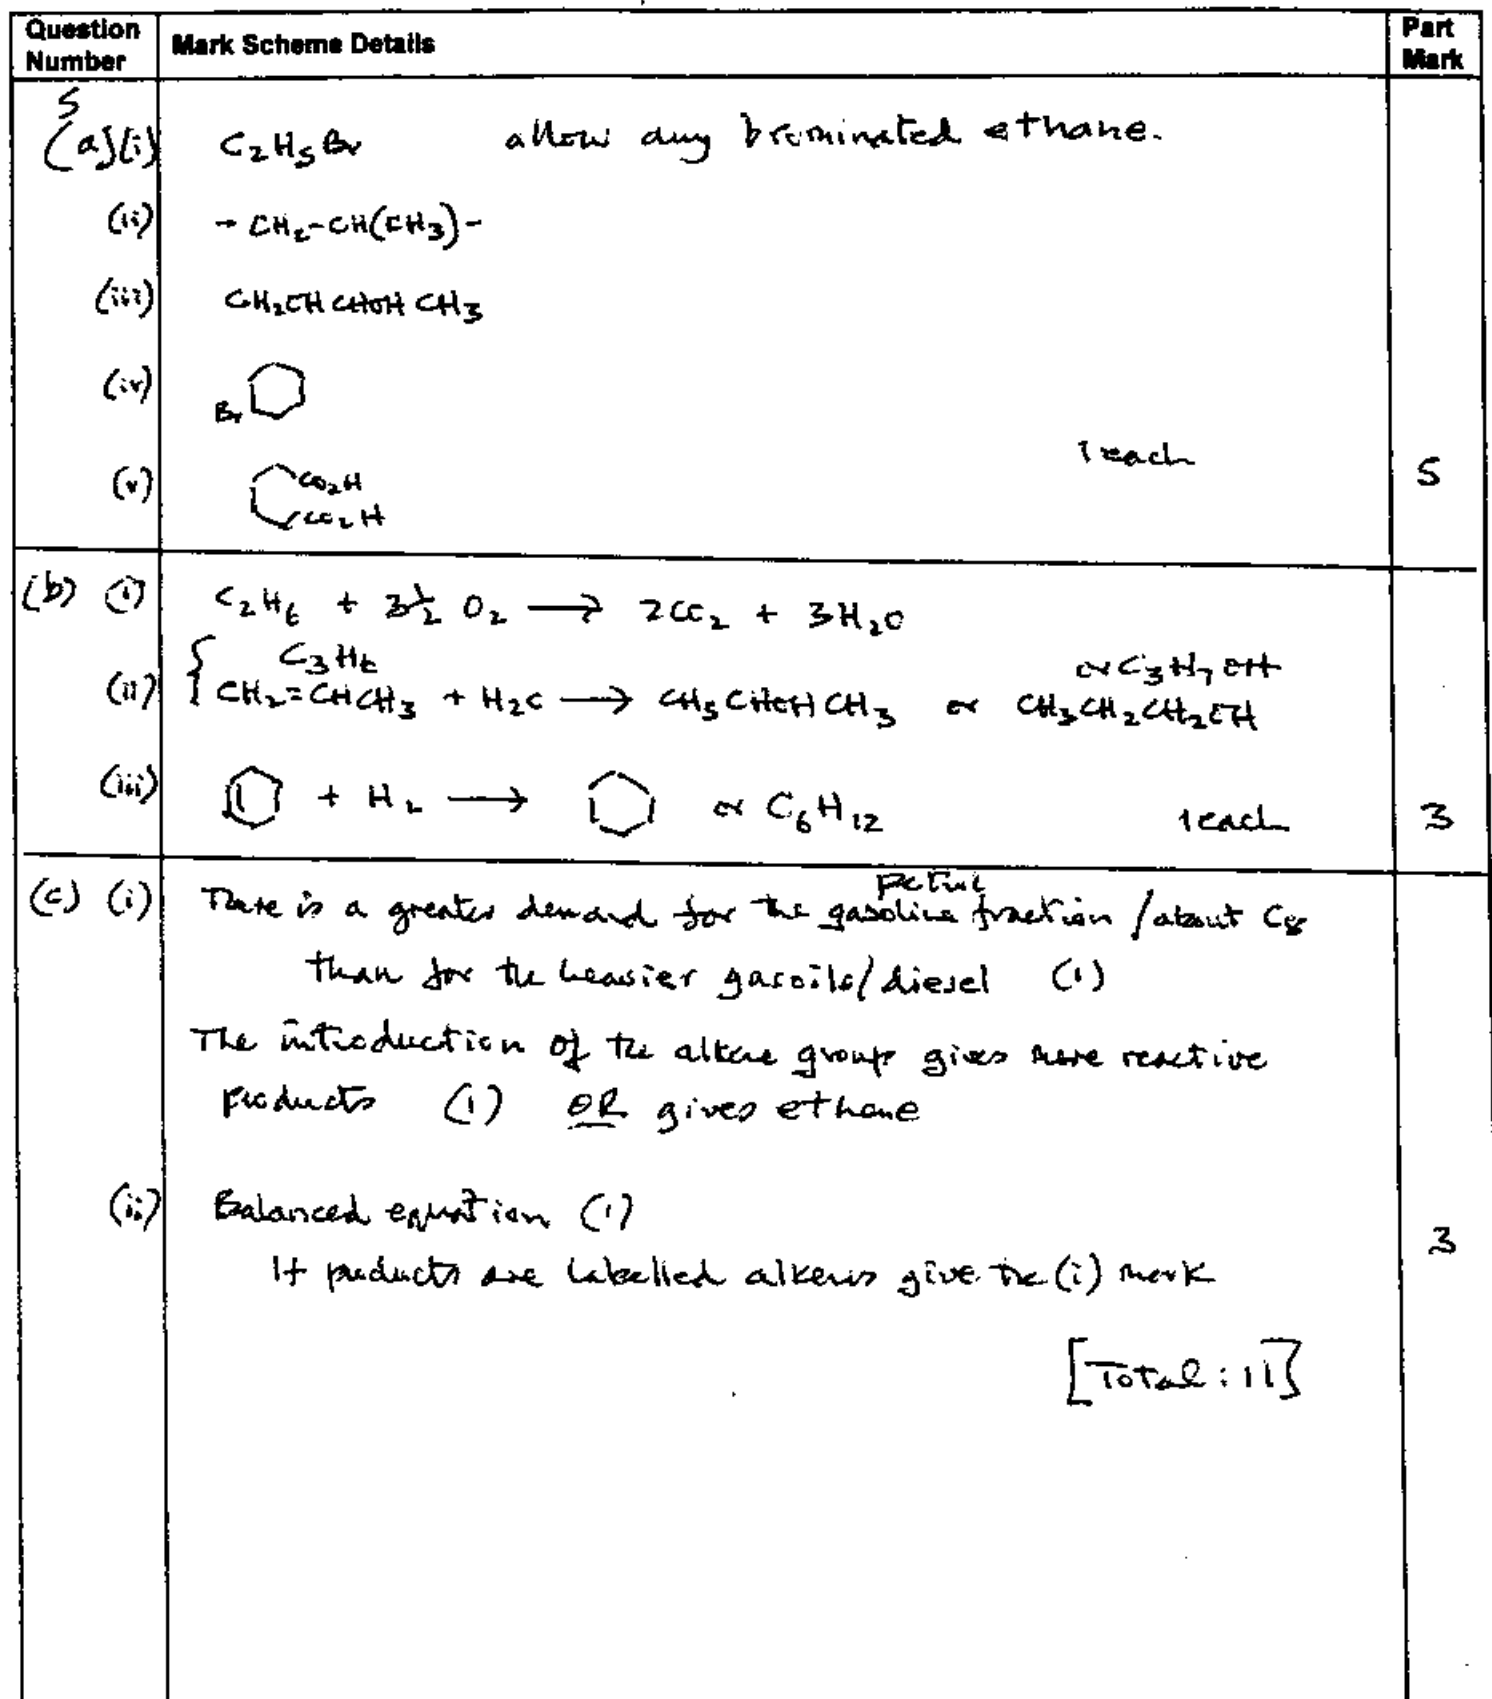 Question Number | Mark Scheme Details | Part Mark
5 (a)(i) C₂H₅Br allow any brominated ethane.
(ii) - CH₂-CH(CH₃)-
(iii) CH₂OH CHOH CH₃
(iv) Br
(v) CO₂H
CO₂H
1 each 5
(b) (i) C₂H₆ + 3½ O₂ → 2CO₂ + 3H₂O
C₃H₆ or C₃H₇OH
(ii) { CH₂=CHCH₃ + H₂O → CH₃CHOHCH₃ or CH₃CH₂CH₂OH
(iii) + H₂ → or C₆H₁₂ 1 each 3
petrol
(c) (i) There is a greater demand for the gasoline fraction / about C₈
than for the heavier gasoils/diesel (1)
The introduction of the alkene group gives more reactive
products (1) OR gives ethane
(ii) Balanced equation (1)
3
If products are labelled alkenes give the (i) mark
[Total : 11]